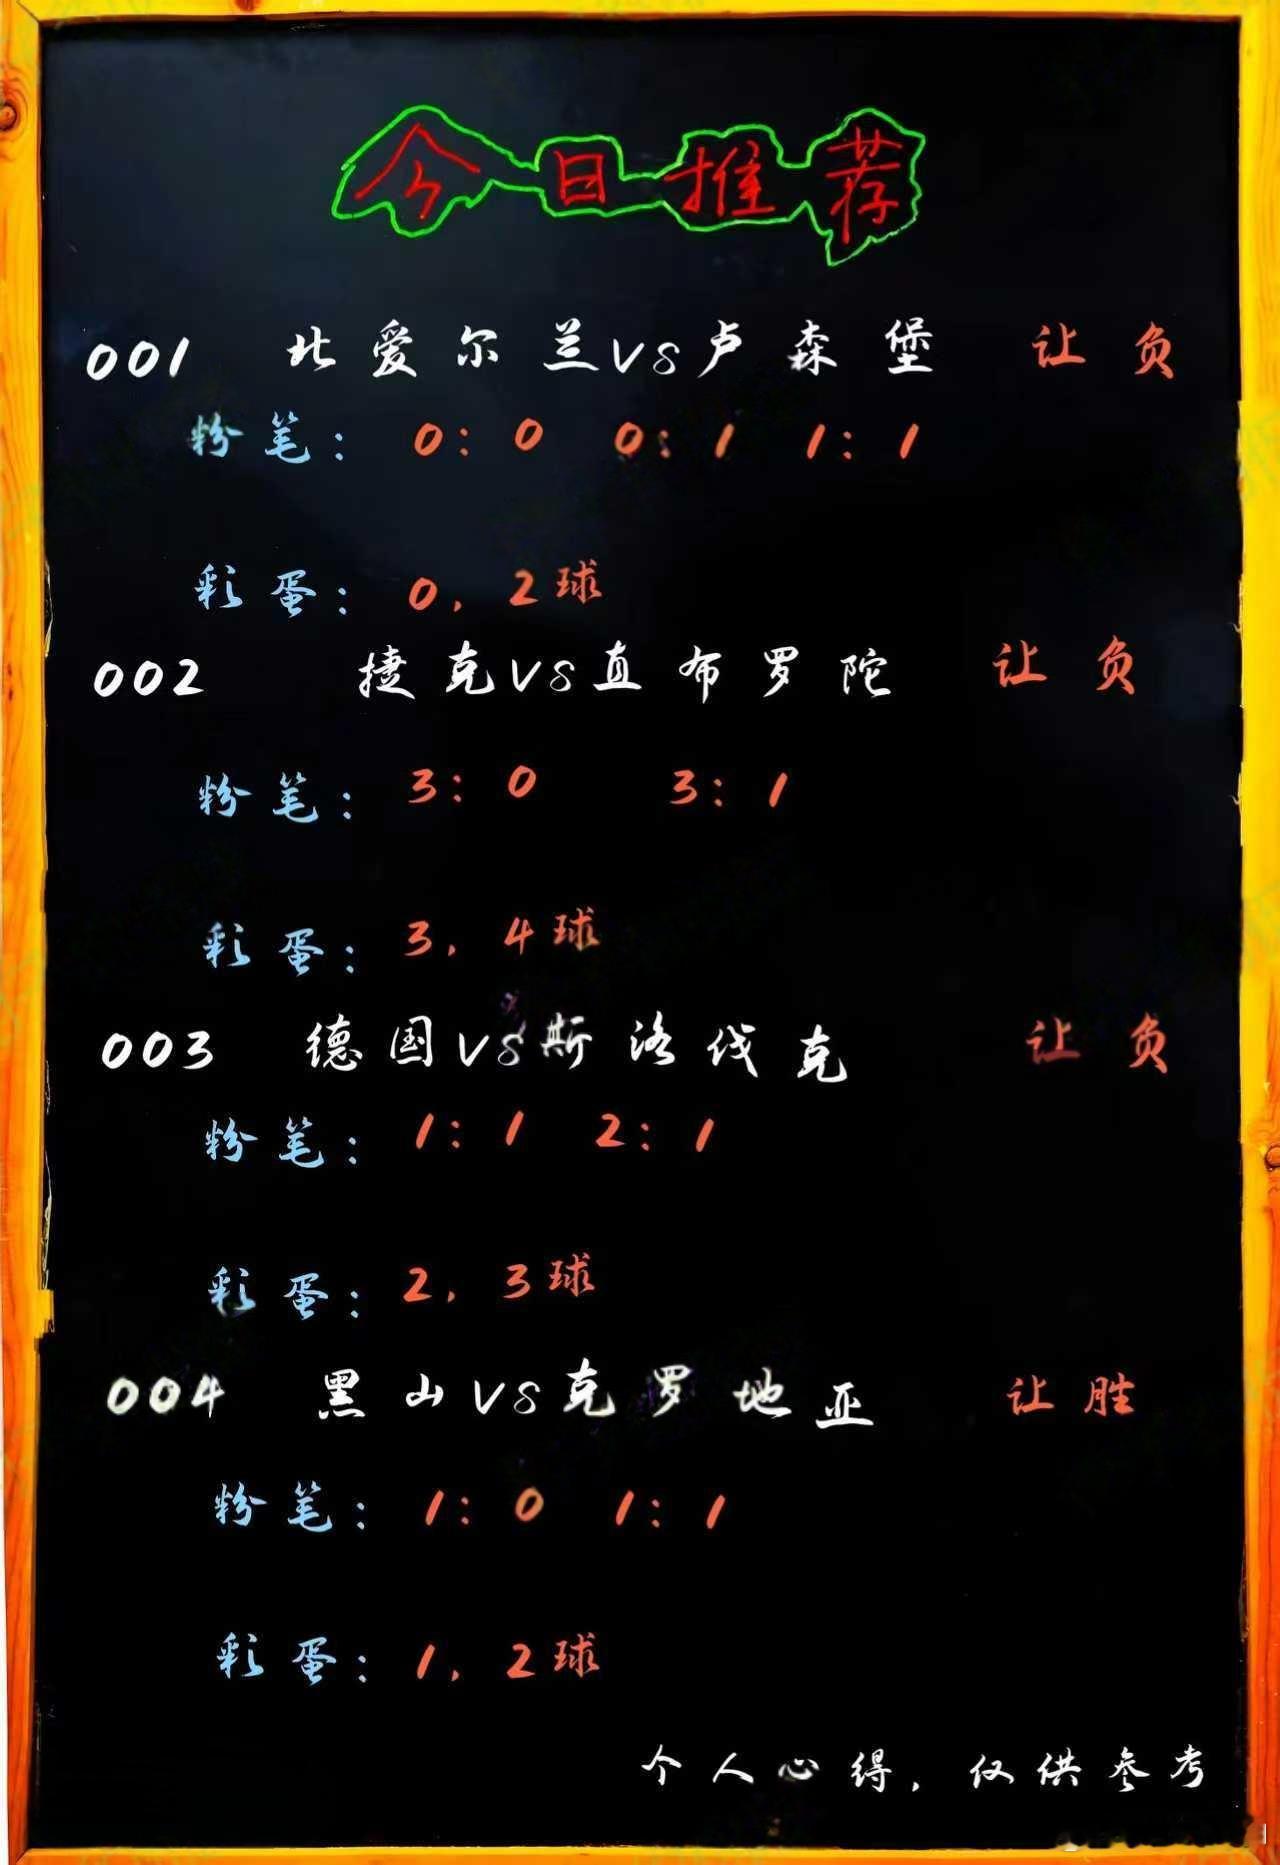 今日推荐
001 北爱尔兰VS卢森堡 让负
粉笔: 0:0 0:1 1:1
彩蛋: 0,2球
002 捷克VS直布罗陀 让负
粉笔: 3:0 3:1
彩蛋: 3,4球
003 德国VS斯洛伐克 让负
粉笔: 1:1 2:1
彩蛋: 2,3球
004 黑山VS克罗地亚 让胜
粉笔: 1:0 1:1
彩蛋: 1,2球
个人心得,仅供参考